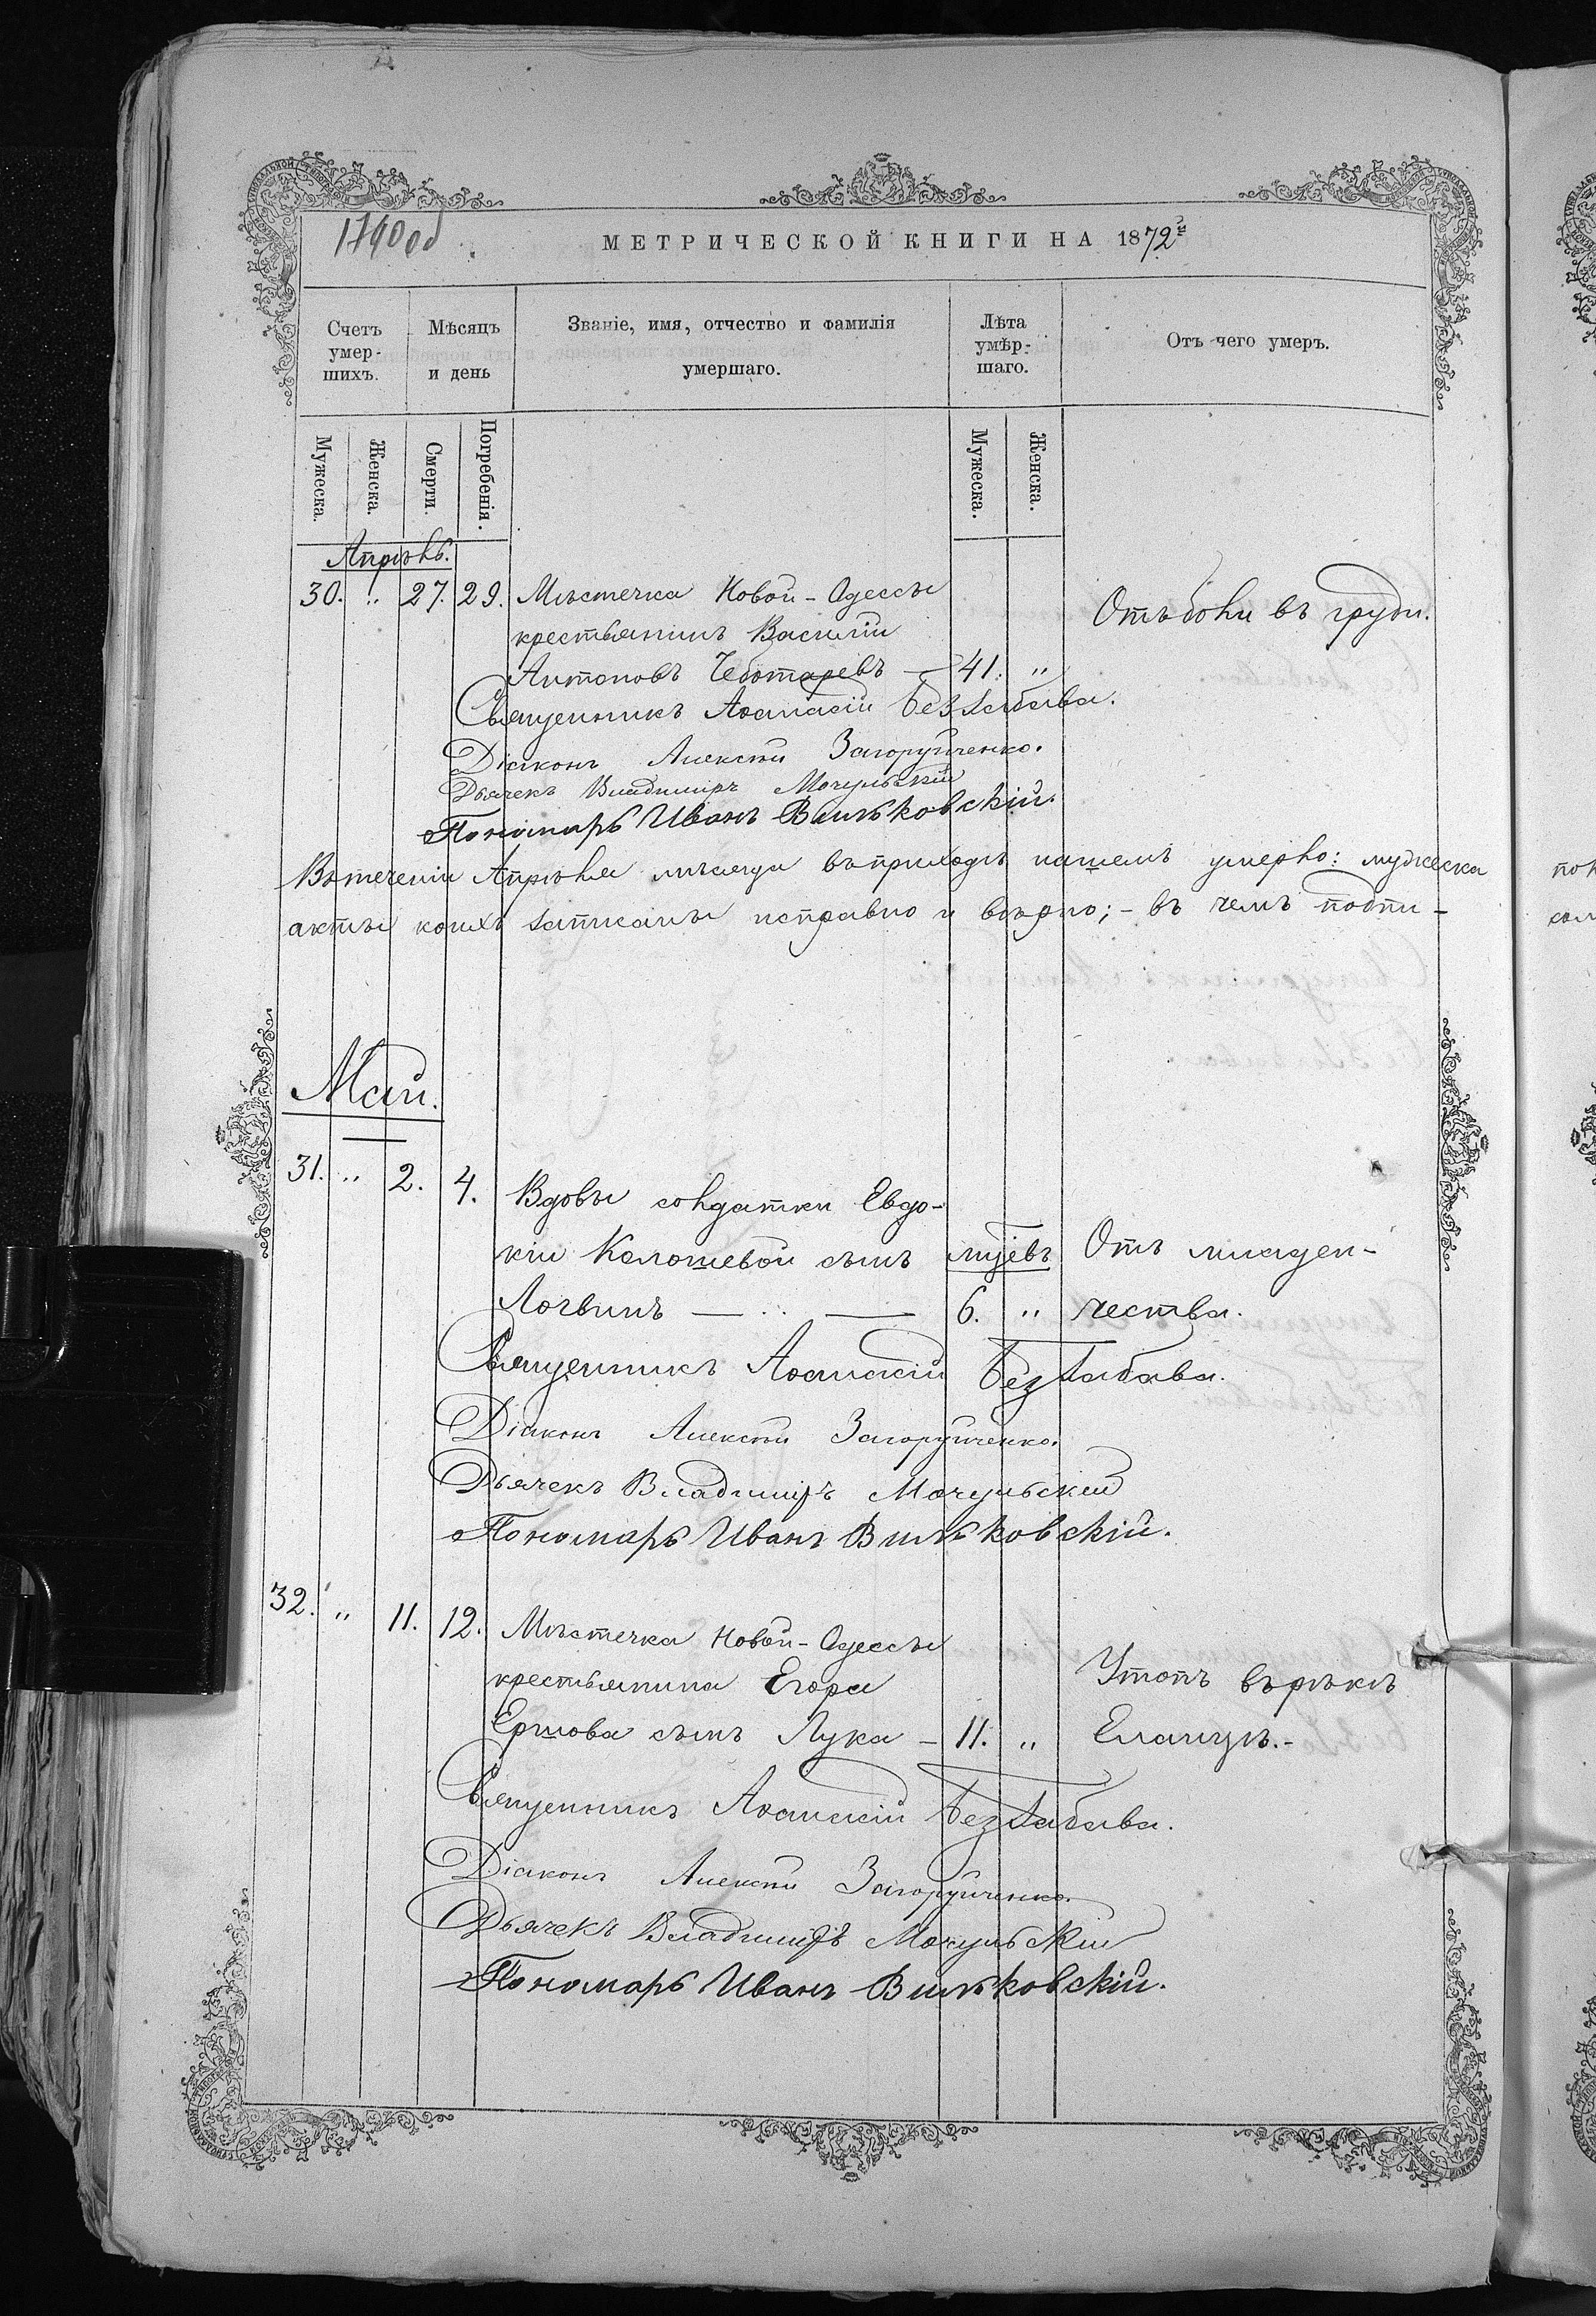 1740 об.
МЕТРИЧЕСКОЙ КНИГИ НА 1872й
Счетъ умер-шихъ.
Мѣсяцъ и день
Званіе, имя, отчество и фамилія умершаго.
Лѣта умѣр-шаго.
Отъ чего умеръ.
Мужеска.
Женска.
Смерти.
Погребенія.
Мужеска.
Женска.
Апрѣль.
30. " 27. 29. Мѣстечка Новой-Одессы
крестьянинъ Василій
Антоновъ Чеботаревъ — 41. "
Отъ боли въ груди.
Священникъ Аѳанасій Беззабава.
Діаконъ Алексѣй Загоруйченко.
Дьячекъ Владиміръ Мочульскій
Пономарь Иванъ Вильковскій.
Въ теченіи Апрѣля мѣсяца въ приходѣ нашемъ умерло: мужеска
акты коихъ записаны исправно и вѣрно; - въ чемъ подпи-
Май.
31. " 2. 4. Вдовы солдатки Евдо-
кіи Калошевой сынъ мцевъ Отъ младен-
Логвинъ — " — 6. " чества.
Священникъ Аѳанасій Беззабава.
Діаконъ Алексѣй Загоруйченко.
Дьячекъ Владиміръ Мочульскій
Пономарь Иванъ Вильковскій.
32. " 11. 12. Мѣстечка Новой-Одессы
крестьянина Егора Утопъ въ рѣкѣ
Ершова сынъ Лука — 11. " Еланцѣ.-
Священникъ Аѳанасій Беззабава.
Діаконъ Алексѣй Загоруйченко.
Дьячекъ Владиміръ Мочульскій
Пономарь Иванъ Вильковскій.